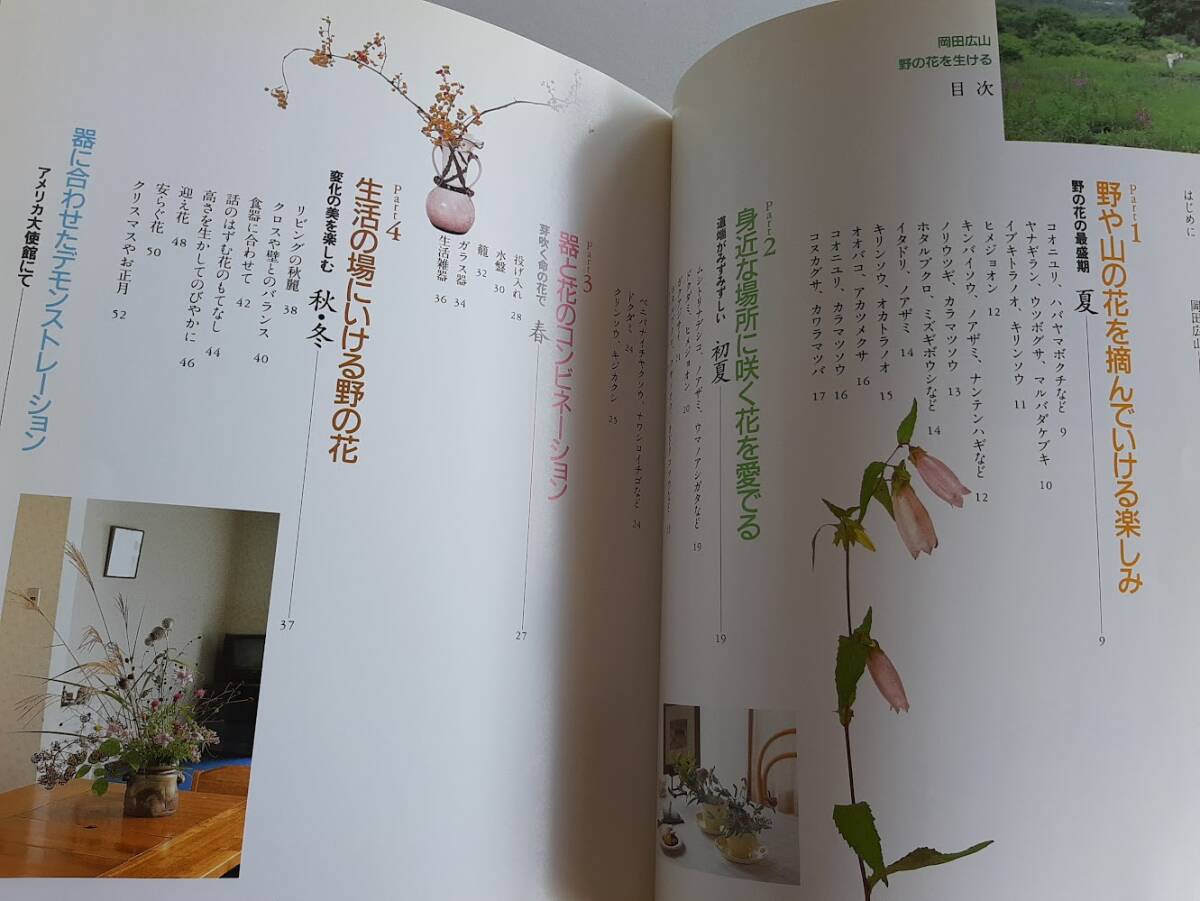 岡田広山
野の花を生ける
目次
はじめに
岡田広山
Part1
野や山の花を摘んでいける楽しみ
野の花の最盛期 夏 9
コオニユリ、ハバヤマボクチなど 9
ヤナギラン、ウツボグサ、マルバダケブキ 10
イブキトラノオ、キリンソウ 11
ヒメジョオン 12
キンバイソウ、ノアザミ、ナンテンハギなど 12
ノリウツギ、カラマツソウ 13
ホタルブクロ、ミズギボウシなど 14
イタドリ、ノアザミ 14
キリンソウ、オカトラノオ 15
オオバコ、アカツメクサ 16
コオニユリ、カラマツソウ 16
コスカグサ、カワラマツバ 17
Part2
身近な場所に咲く花を愛でる
道端がみずみずしい 初夏 19
ムシトリナデシコ、ノアザミ、ウマノアシガタなど 19
ドクダミ、ヒメジョオン 20
ベニバナイチヤクソウ、ナワシロイチゴなど 24
ドクダミ 24
クリンソウ、キジカクシ 25
Part3
器と花のコンビネーション
芽吹く命の花で 春 27
投げ入れ 28
水盤 30
籠 32
ガラス器 34
生活雑器 36
Part4
生活の場にいける野の花
変化の美を楽しむ 秋・冬 37
リビングの秋麗 38
クロスや壁とのバランス 40
食器に合わせて 42
話のはずむ花のもてなし 44
高さを生かしてのびやかに 46
迎え花 48
安らぐ花 50
クリスマスやお正月 52
器に合わせたデモンストレーション
アメリカ大使館にて